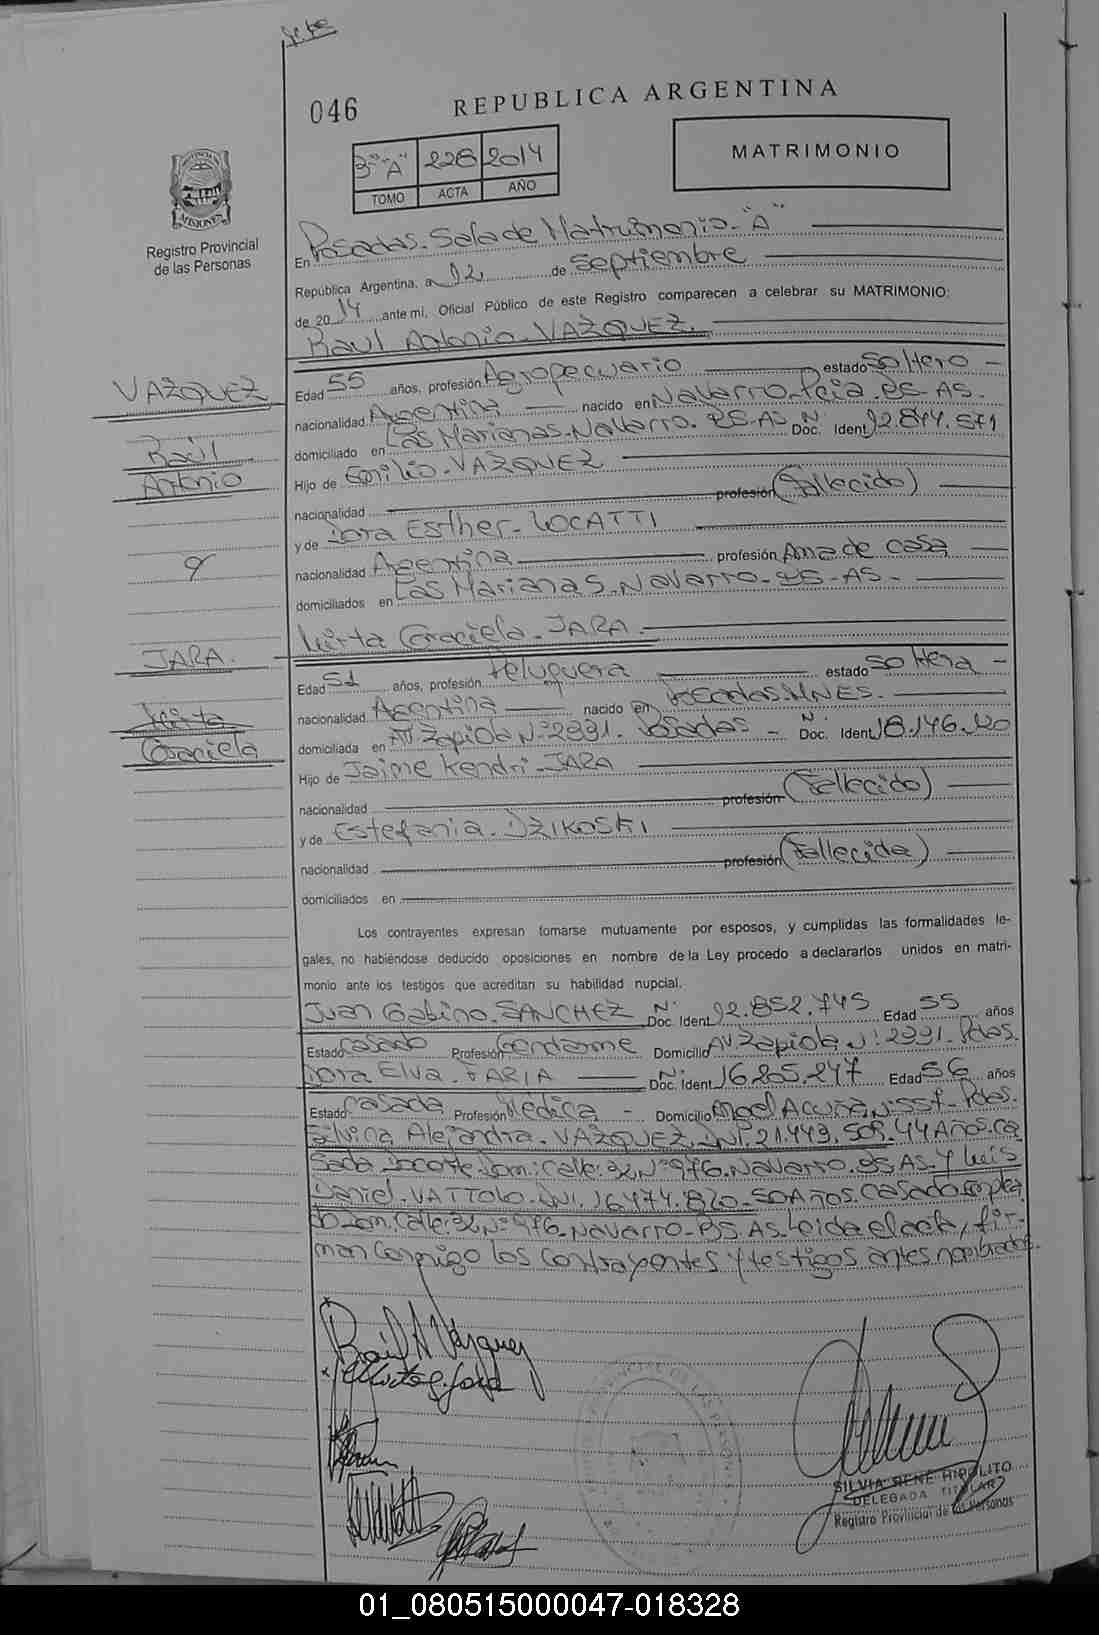 046
REPUBLICA ARGENTINA
3° "A" 226 2014
TOMO ACTA AÑO
MATRIMONIO
MISIONES
Registro Provincial
de las Personas
En Posadas. Sala de Matrimonio. "A"
República Argentina, a 12 de Septiembre
de 2014 ante mi, Oficial Público de este Registro comparecen a celebrar su MATRIMONIO:
Raul Antonio. VAZQUEZ.
VAZQUEZ
Raúl
Antonio
y
JARA.
Mirta
Graciela
Edad 55 años, profesión Agropecuario estado Soltero
nacionalidad Argentina nacido en Navarro. Pcia. BS. AS.
domiciliado en Las Marianas. Navarro. BS. AS. Doc. Ident N° 12.844.571
Hijo de Emilio. VAZQUEZ
nacionalidad profesión (Fallecido)
y de Dora Esther. LOCATTI
nacionalidad Argentina profesión Ama de casa
domiciliados en Las Marianas. Navarro. BS. AS.
Mirta Graciela. JARA.
Edad 51 años, profesión Peluquera estado Soltera
nacionalidad Argentina nacido en Posadas. MNES.
domiciliada en AV. Zapiola N° 2991. Posadas Doc. Ident N° 18.146.
Hijo de Jaime Kendri. JARA
nacionalidad profesión (Fallecido)
y de Estefania. DZIKOSKI
nacionalidad profesión (Fallecida)
domiciliados en
Los contrayentes expresan tomarse mutuamente por esposos, y cumplidas las formalidades le-
gales, no habiéndose deducido oposiciones en nombre de la Ley procedo a declararlos unidos en matri-
monio ante los testigos que acreditan su habilidad nupcial.
Juan Gabino. SANCHEZ Doc. Ident N° 12.852.745 Edad 55 años
Estado casado Profesión Gendarme Domicilio AV. Zapiola N° 2991. Pdas.
Dora Elva. FARIA Doc. Ident N° 16.205.247 Edad 56 años
Estado casada Profesión Médica Domicilio Acuña N° 557. Pdas.
Silvina Alejandra. VAZQUEZ. DNI. 21.449.508. 44 Años. ca
sada Docente Dom: Calle: 32. N° 976. Navarro. BS. AS. Y Luis
Daniel. VATTOLO. DNI. 16.474.820. 50 Años. casado. emplea
do Dom. Calle: 32. N° 976. Navarro. BS. AS. Leida el acta, fir-
man conmigo los contrayentes y testigos antes nombrados.
Raúl A Vazquez
SILVIA RENE HIPOLITO
DELEGADA TITULAR
Registro Provincial de las Personas
01_080515000047-018328